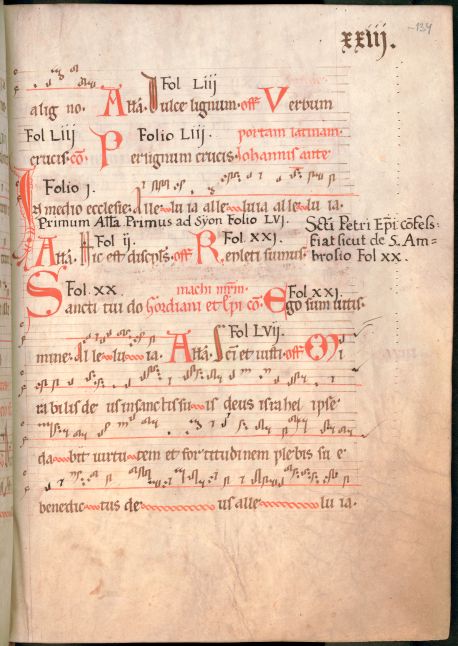 134
xxiij.
Fol Liij
alig no. Alła. Dulce lignum. off Verbum
Fol Liij Folio Liij. portam latinam.
crucis. cō. Per lignum crucis. Iohannis ante
Folio j.
In medio ecclesie. Alle lu ia alle luia alle lu ia.
Primum Alła Primus ad Syon Folio LVj. Scti Petri Epi cōfess:
Fol ij. Fol xxj. fiat sicut de S. Am=
Alła. Hic est discipls. off Repleti sumus. brosio Fol xx.
Fol xx. machi mrm. Fol xxj.
Sancti tui do Gordiani et Epi cō. Ego sum uitis.
Fol Lvij.
mine. Alle lu ia. Alła. Scī et iusti. off Mi
rabilis de us in sanctis su is deus israhel ipse
da bit uirtu tem et for titudinem plebis su e
benedic tus de us alle lu ia.